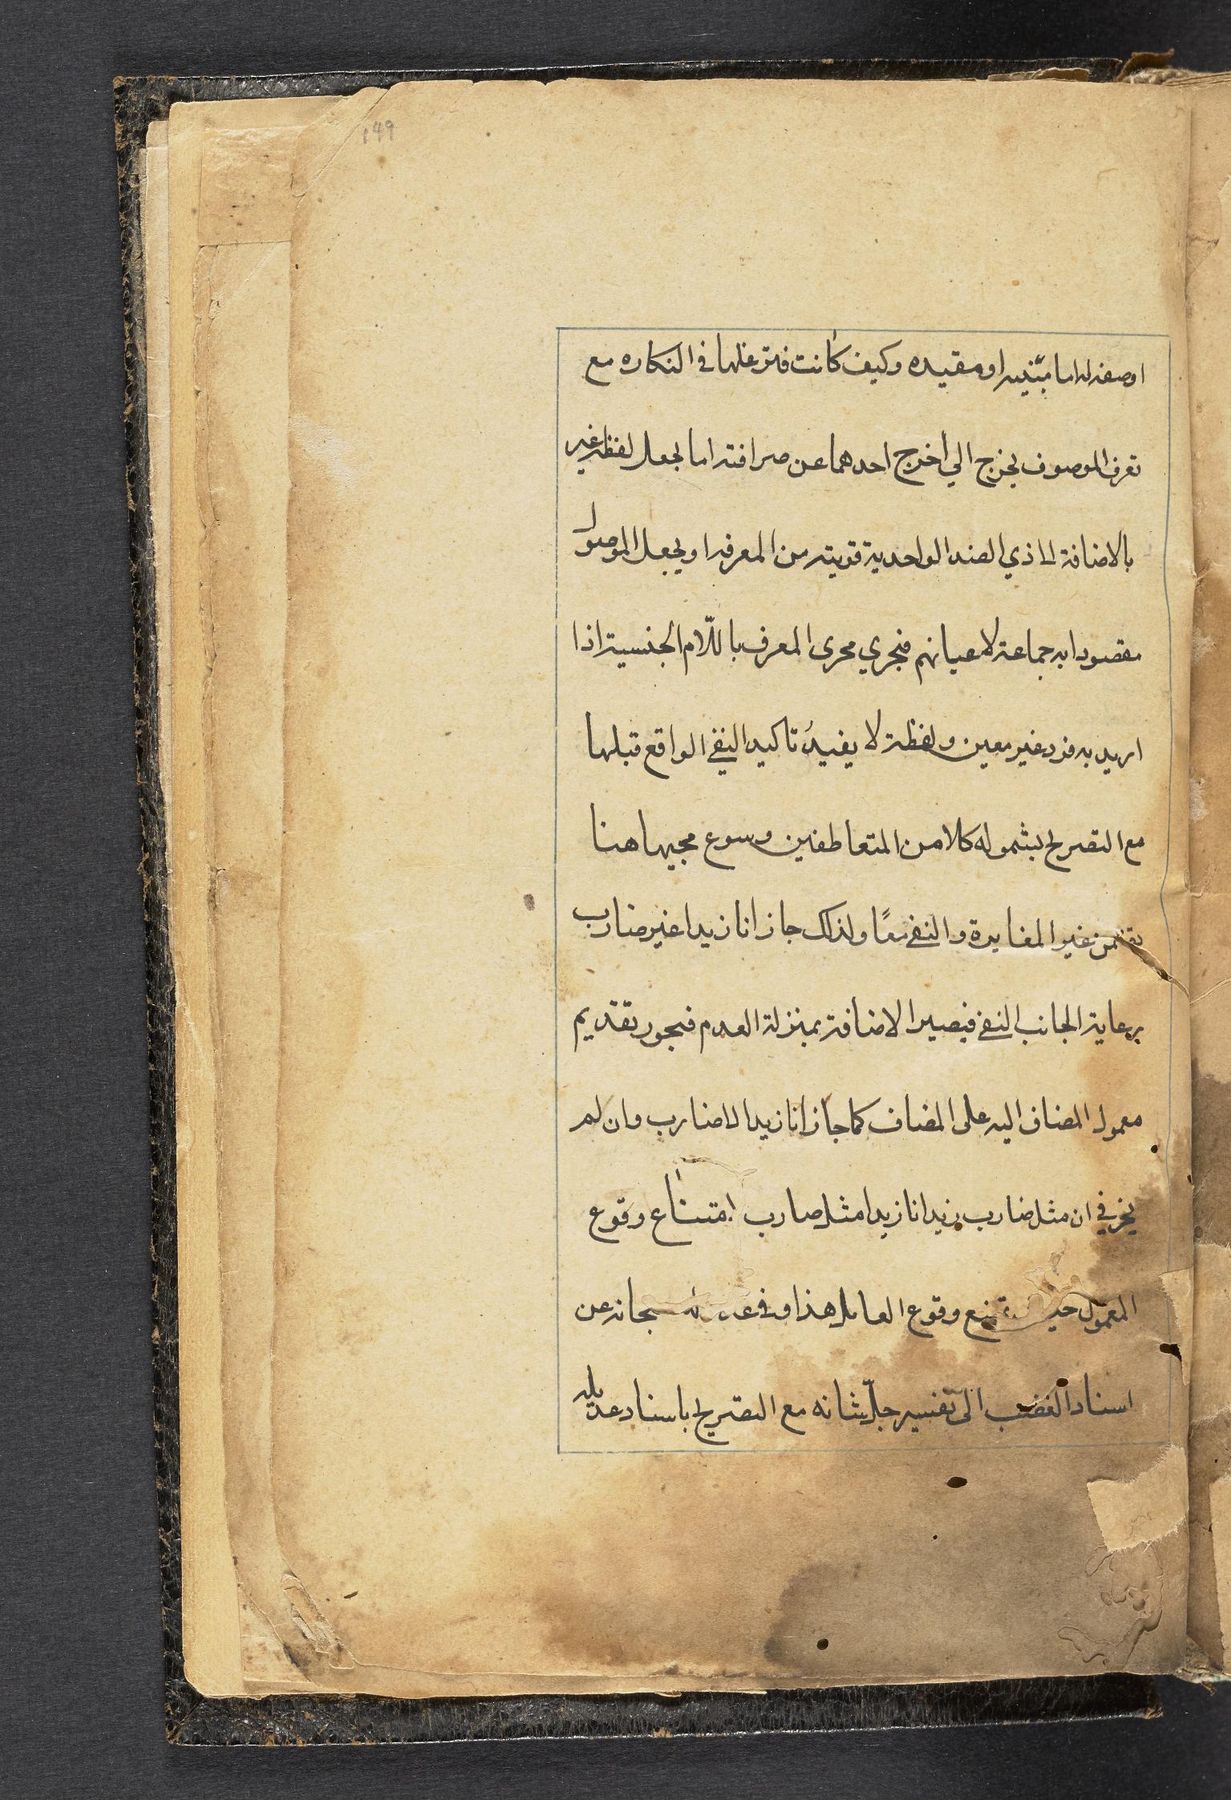 ١٤٩
اوصفه له اما مبينه او مقيده وكيف كانت فتوغلها في النكاره مع
تعرف الموصوف يحوج الي اخرج احدهما عن صرافته اما بجعل لفظه غير
بالاضافة الى ذي الضد الواحد يه قويته من المعرفه او بجعل الموصول
مقصودا به جماعة لا معيانهم فيجري مجرى المعرف باللام الجنسية اذا
اريد به فرد غير معين ولفظة لا يفيد تاكيد النفي الواقع قبلها
مع التصريح بشموله كلا من المتعاطفين وسوع مجيها هنا
تضمن غير المغايرة والنفي معًا ولذلك جاز انا زيدا غير ضارب
برعاية الجانب النفي فيصير الاضافة بمنزلة العدم فيجوز تقديم
معمول المضاف اليه على المضاف كما جاز انا زيدا لا ضارب وان لم
يجز في ان مثل ضارب زيدا انا زيدا مثل ضارب امتناع وقوع
المعمول يمتنع وقوع العامل هذا وفي سبحانه عن
اسناد الغضب الى نفسه جل شانه مع التصريح باسناد عديله